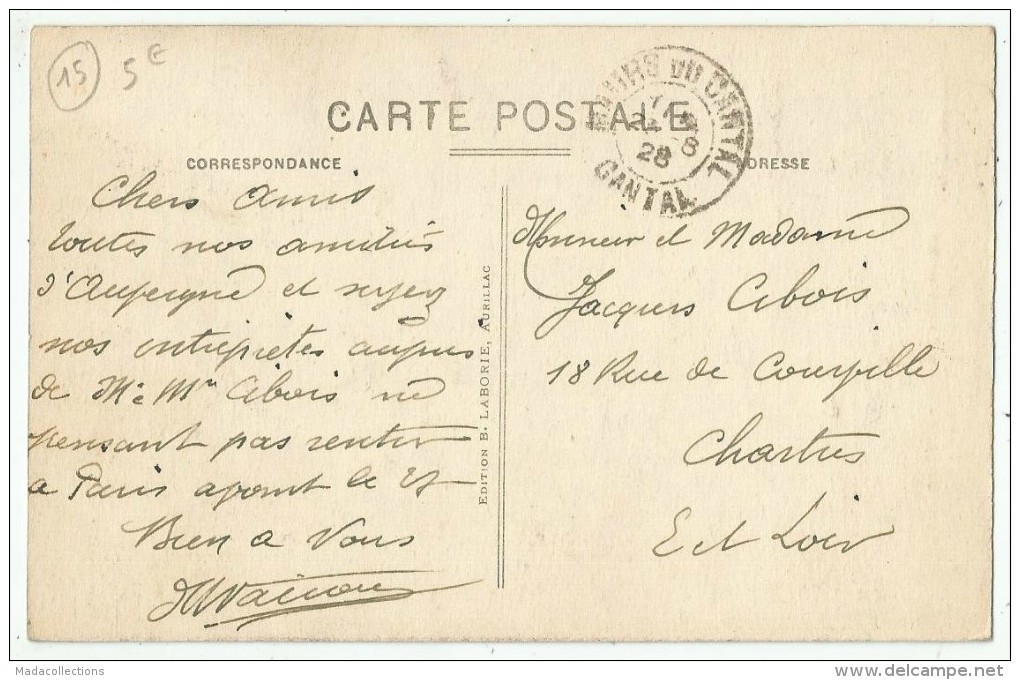 15
5€
CARTE POSTALE
MAURS DU CANTAL
28
CANTAL
CORRESPONDANCE
ADRESSE
Chers Amis
toutes nos amitiés
d'Auvergne et soyez
nos interprètes auprès
de M. & Mme Cibois ne
pensant pas rentrer
a Paris avant le 27
Bien a Vous
EDITION B. LABORIE, AURILLAC
Monsieur et Madame
Jacques Cibois
18 Rue de Courville
Chartres
E et Loir
Madacollections
www.delcampe.net